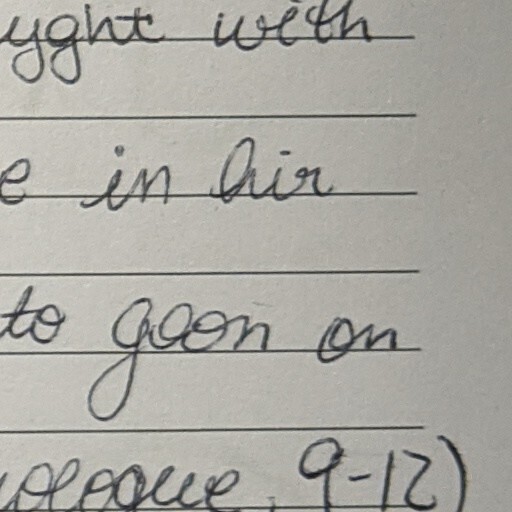 yght with
e in hir
to goon on
ologue, 9-12)